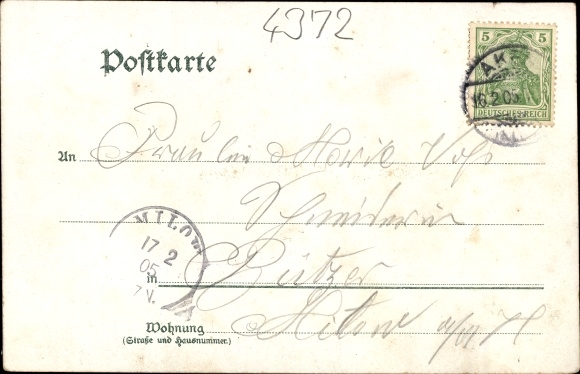 4372
Postkarte
5 5
AK
16.2.05
DEUTSCHES REICH
An Fräulein Marie Voß
Schneiderin
MILOW
17 2
05
V.
in Bützer
Wohnung Milow a/d H
(Straße und Hausnummer.)